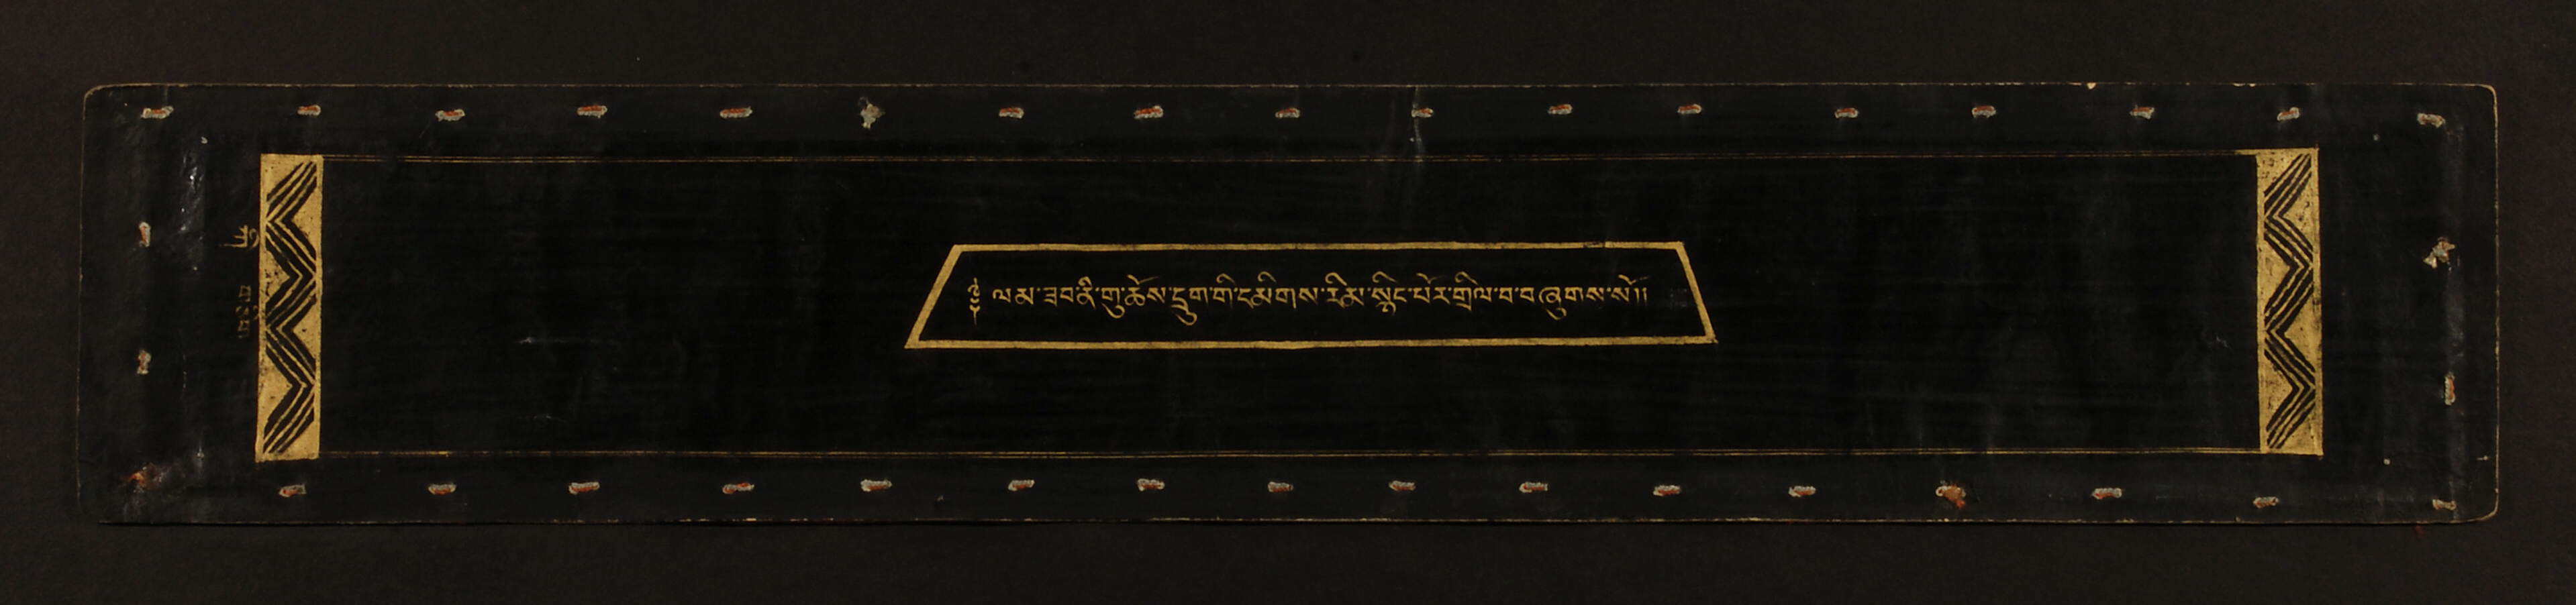 ༄༅། ལམ་ཟབ་ནཱི་གུ་ཆོས་དྲུག་གི་དམིགས་རིམ་སྙིང་པོར་དྲིལ་བ་བཞུགས་སོ།།